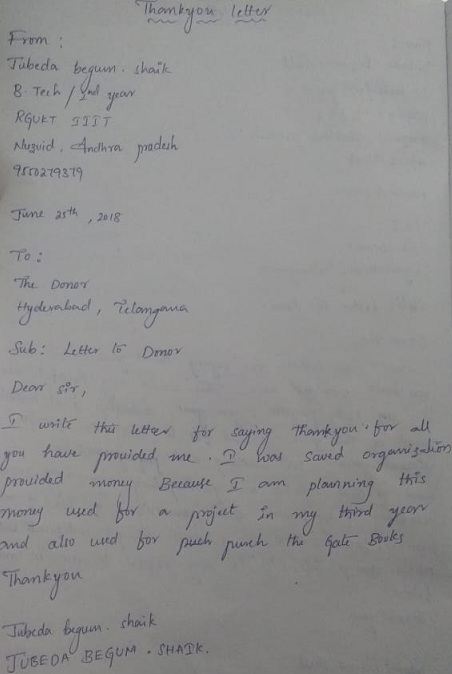 Thankyou letter
From :
Jubeda begum. shaik
B. Tech / 2nd year
RGUKT IIIT
Nuzvid, Andhra pradesh
9550279379
June 25th, 2018
To :
The Donor
Hyderabad, Telangana
Sub : Letter to Donor
Dear sir,
I write this letter for saying thankyou for all
you have provided me. I was saved organization
provided money Because I am planning this
money used for a project in my third year
and also used for puch purch the Gate Books
Thankyou
Jubeda begum. shaik
JUBEDA BEGUM. SHAIK.